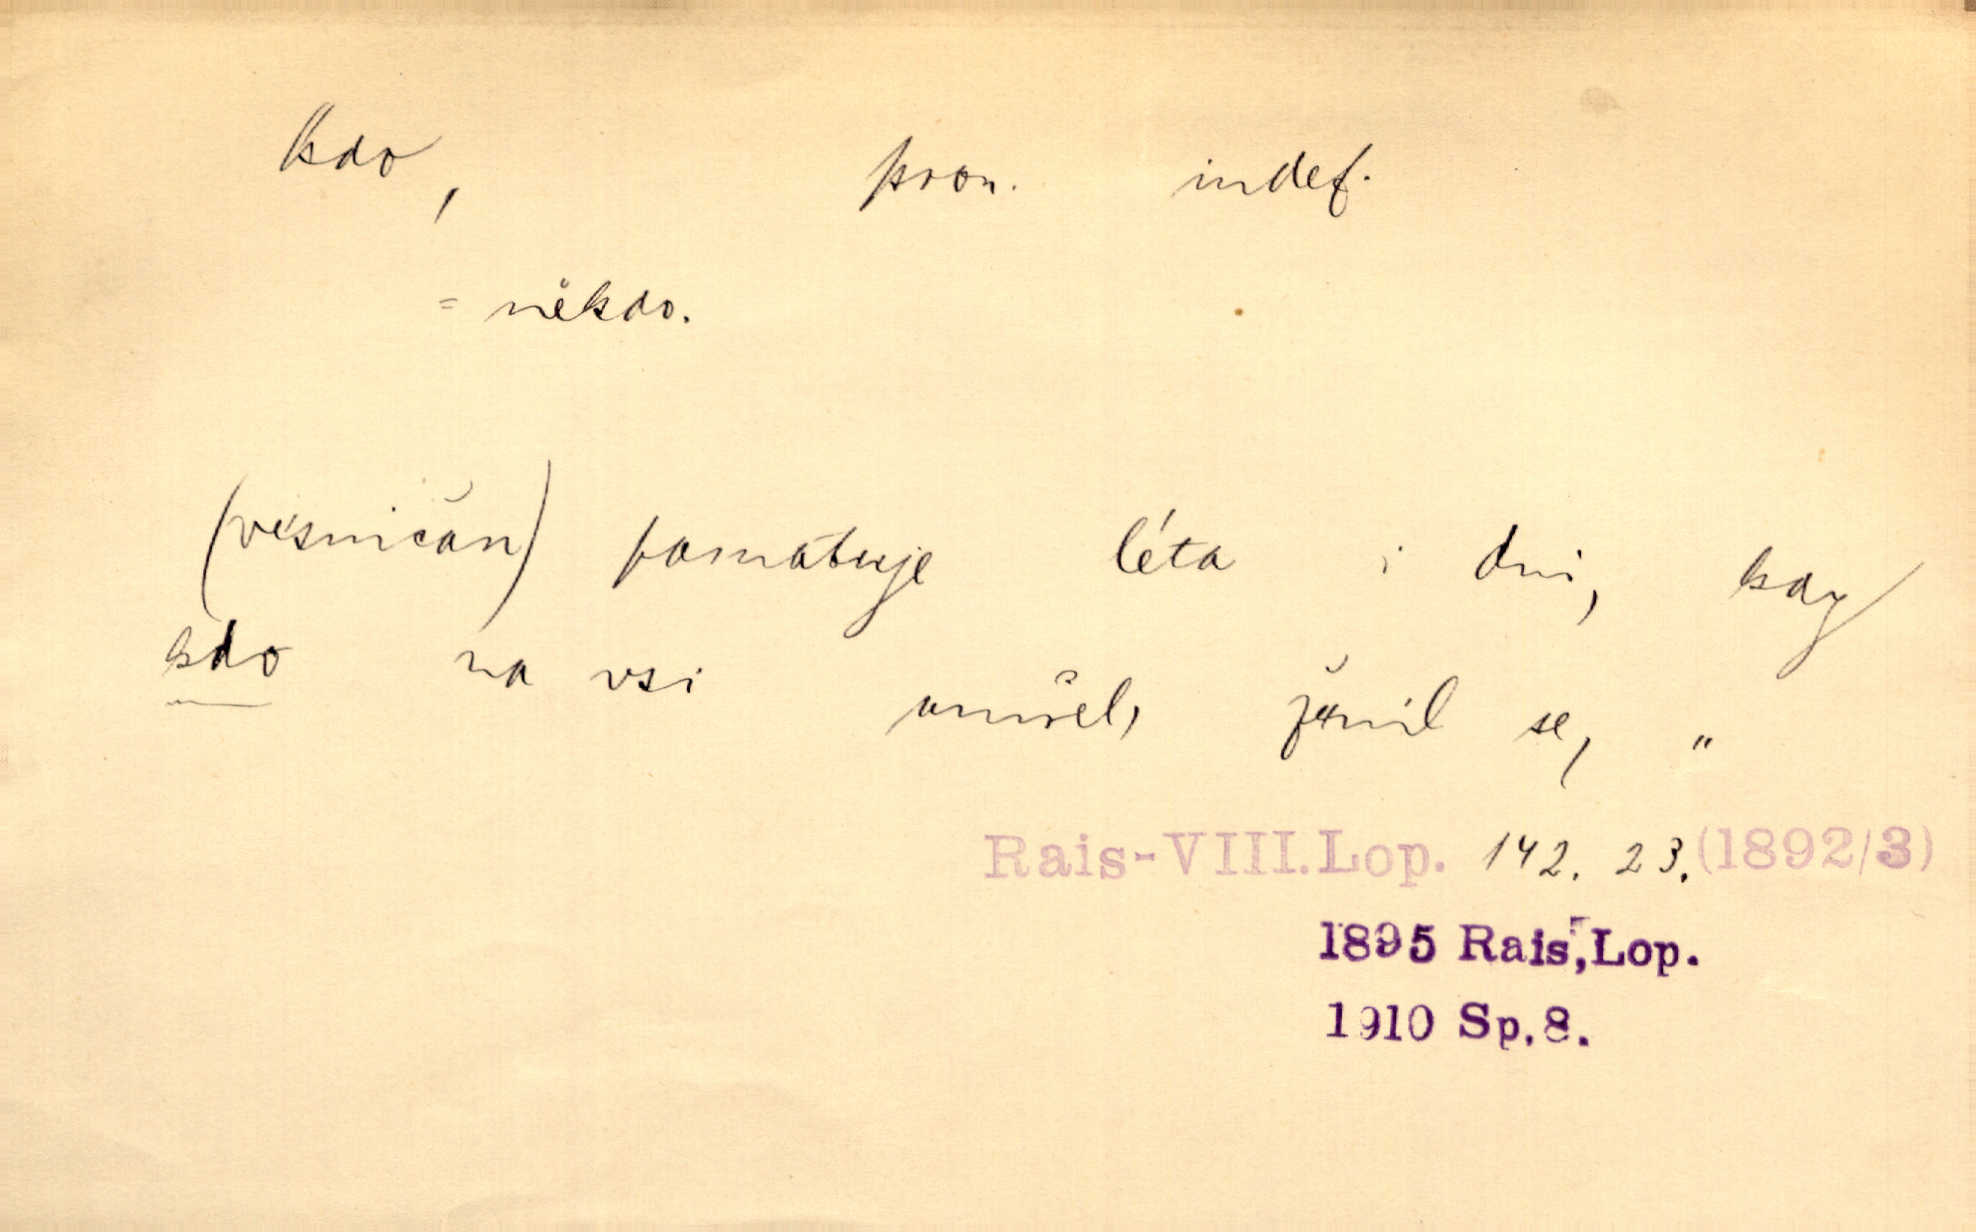 kdo, pron. indef.
= někdo.
(vesničan) pamatuje léta i dni, kdy
kdo na vsi umřel, ženil se, "
Rais-VIII.Lop. 142. 23. (1892/3)
1895 Rais, Lop.
1910 Sp.8.